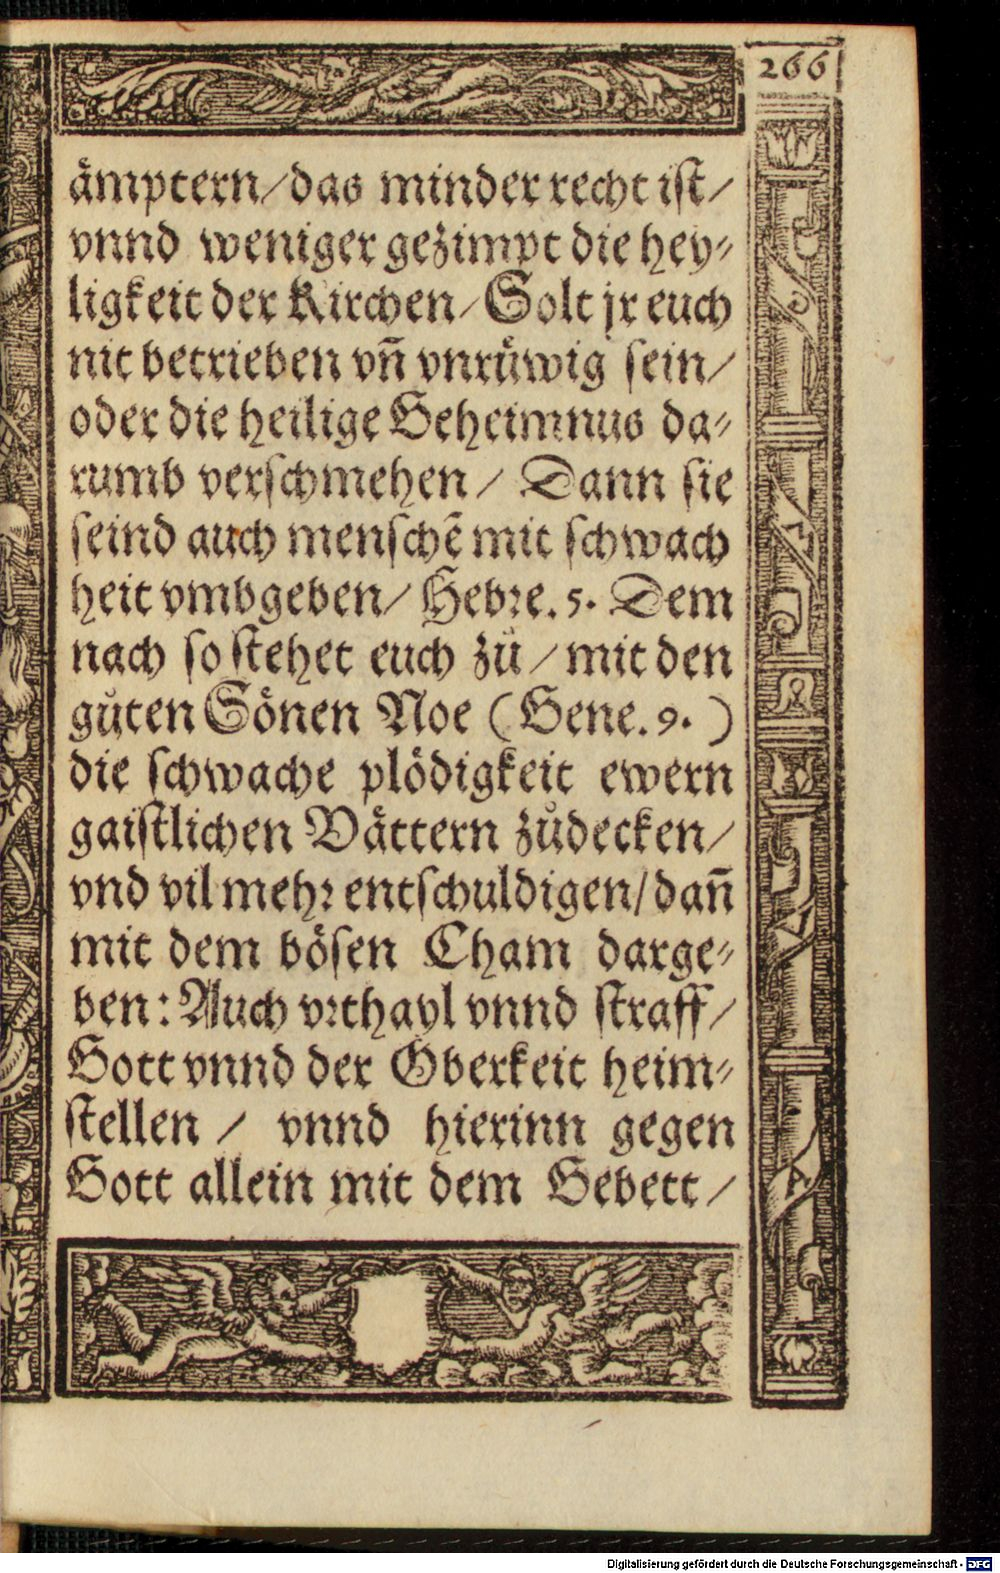 266
ämptern/das minder recht ist/
vnnd weniger gezimpt die hey-
ligkeit der Kirchen/Solt jr euch
nit betrieben vn̄ vnrüwig sein/
oder die heilige Geheimnus da-
rumb verschmehen/ Dann sie
seind auch menschē mit schwach
heit vmbgeben/ Hebre. 5. Dem
nach so stehet euch zů/mit den
gůten Sönen Noe (Gene. 9.)
die schwache plödigkeit ewern
gaistlichen Vättern zůdecken/
vnd vil mehr entschuldigen/dan̄
mit dem bösen Cham darge-
ben: Auch vrthayl vnnd straff/
Gott vnnd der Oberkeit heim-
stellen / vnnd hierinn gegen
Gott allein mit dem Gebett/
Digitalisierung gefördert durch die Deutsche Forschungsgemeinschaft - DFG